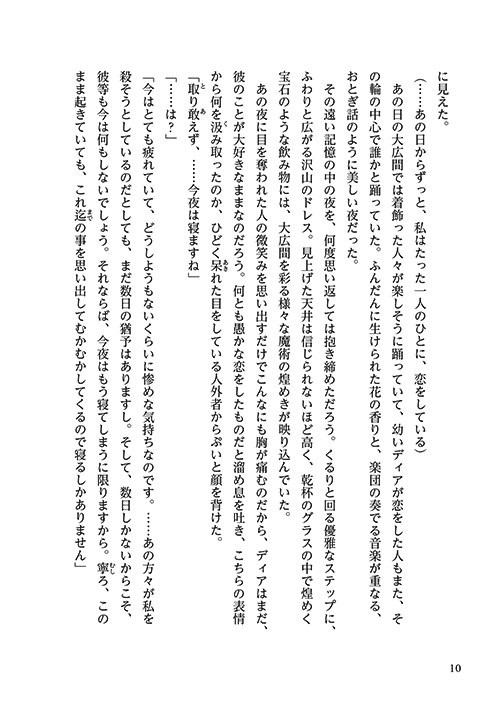 に見えた。
（……あの日からずっと、私はたった一人のひとに、恋をしている）
あの日の大広間では着飾った人々が楽しそうに踊っていて、幼いディアが恋をした人もまた、そ
の輪の中心で誰かと踊っていた。ふんだんに生けられた花の香りと、楽団の奏でる音楽が重なる、
おとぎ話のように美しい夜だった。
その遠い記憶の中の夜を、何度思い返しては抱き締めただろう。くるりと回る優雅なステップに、
ふわりと広がる沢山のドレス。見上げた天井は信じられないほど高く、乾杯のグラスの中で煌めく
宝石のような飲み物には、大広間を彩る様々な魔術の煌めきが映り込んでいた。
あの夜に目を奪われた人の微笑みを思い出すだけでこんなにも胸が痛むのだから、ディアはまだ、
彼のことが大好きなままなのだろう。何とも愚かな恋をしたものだと溜め息を吐き、こちらの表情
から何を汲み取ったのか、ひどく呆れた目をしている人外者からぷいと顔を背けた。
「取り敢えず、……今夜は寝ますね」
「……は？」
「今はとても疲れていて、どうしようもないくらいに惨めな気持ちなのです。……あの方々が私を
殺そうとしているのだとしても、まだ数日の猶予はありますし。そして、数日しかないからこそ、
彼等も今は何もしないでしょう。それならば、今夜はもう寝てしまうに限りますから。寧ろ、この
まま起きていても、これ迄の事を思い出してむかむかしてくるので寝るしかありません」
10